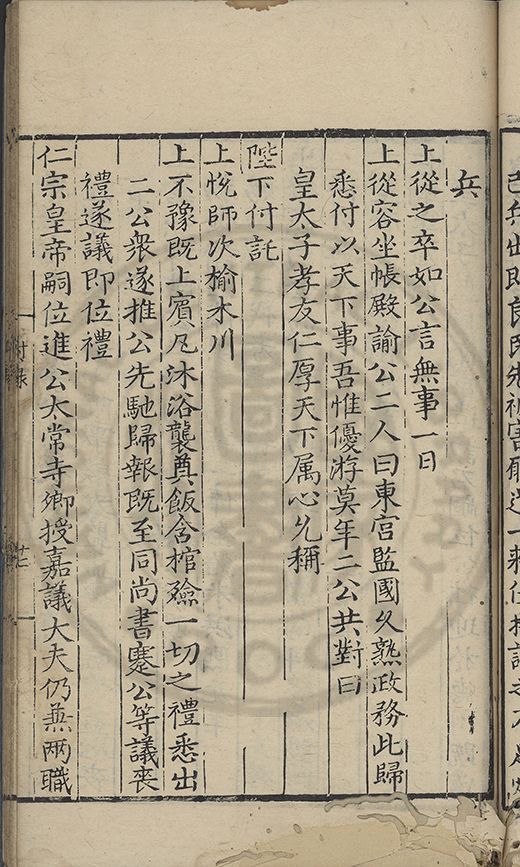 兵
上從之卒如公言無事一日
上從容坐帳殿諭公二人曰東宫監國久熟政務此歸
悉付以天下事吾惟優游莫年二公共對曰
皇太子孝友仁厚天下属心允稱
陛下付託
上悅師次榆木川
上不豫既上賓凡沐浴襲奠飯含棺殮一切之禮悉出
二公衆遂推公先馳歸報既至同尚書蹇公等議喪
禮遂議即位禮
仁宗皇帝嗣位進公太常寺卿授嘉議大夫仍兼兩職
付录
廿一